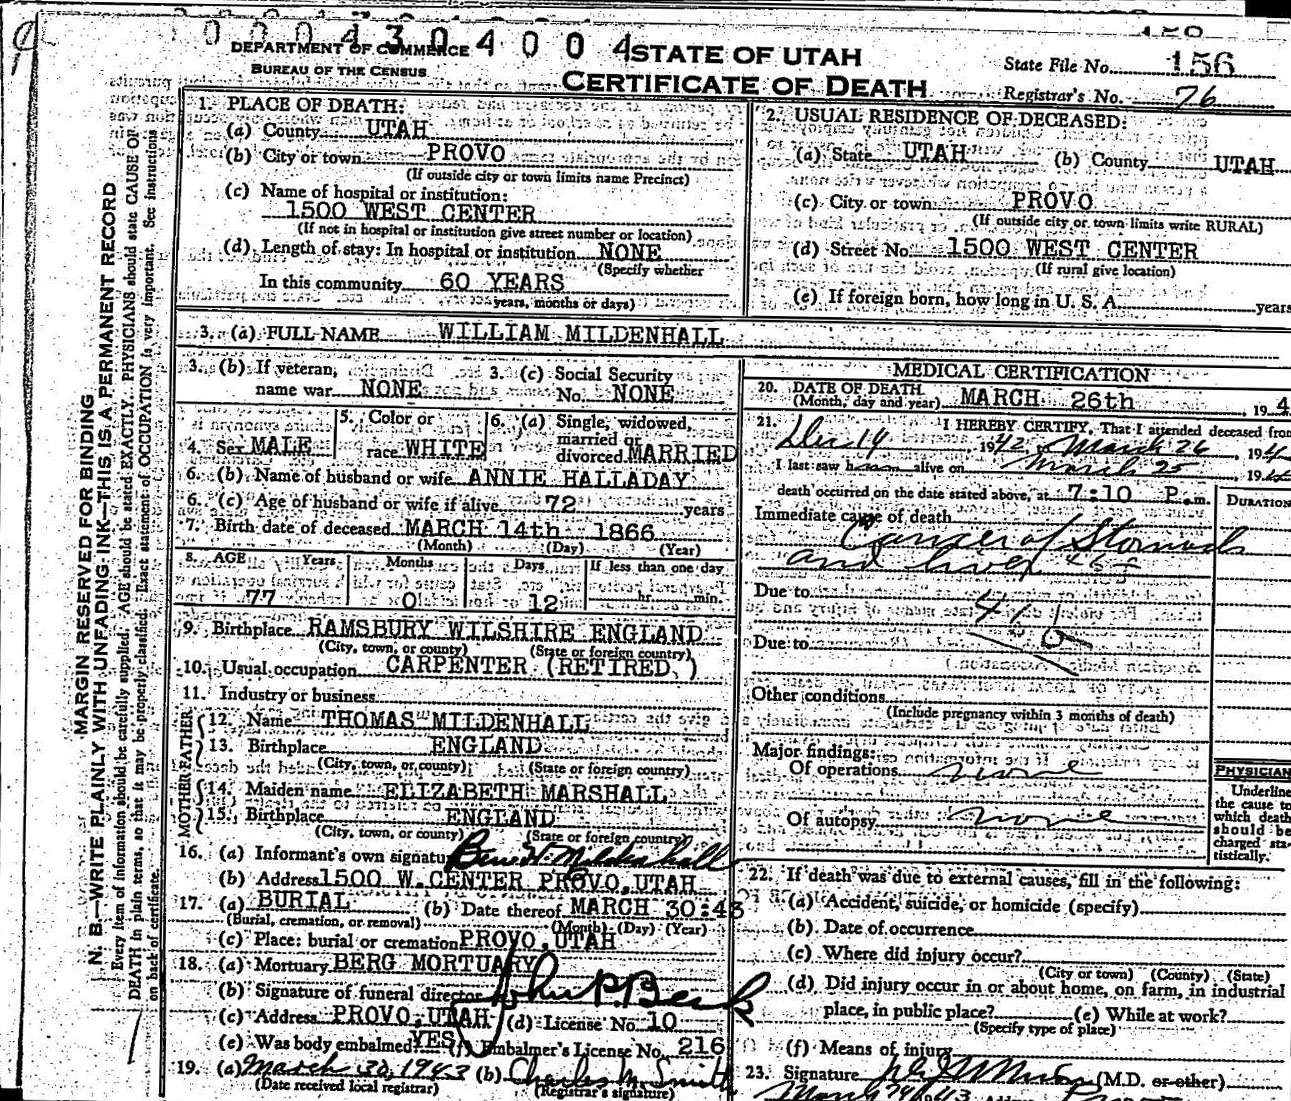 0004304004
DEPARTMENT OF COMMERCE
BUREAU OF THE CENSUS
STATE OF UTAH
CERTIFICATE OF DEATH
State File No. 156
Registrar's No. 76
MARGIN RESERVED FOR BINDING
N. B.—WRITE PLAINLY WITH UNFADING INK—THIS IS A PERMANENT RECORD
Every item of information should be carefully supplied. AGE should be stated EXACTLY. PHYSICIANS should state CAUSE OF
DEATH in plain terms, so that it may be properly classified. Exact statement of OCCUPATION is very important. See instructions
on back of certificate.
1. PLACE OF DEATH:
(a) County UTAH
(b) City or town PROVO
(If outside city or town limits name Precinct)
(c) Name of hospital or institution:
1500 WEST CENTER
(If not in hospital or institution give street number or location)
(d) Length of stay: In hospital or institution NONE
(Specify whether
In this community 60 YEARS
years, months or days)
2. USUAL RESIDENCE OF DECEASED:
(a) State UTAH (b) County UTAH
(c) City or town PROVO
(If outside city or town limits write RURAL)
(d) Street No. 1500 WEST CENTER
(If rural give location)
(e) If foreign born, how long in U. S. A. years
3. (a) FULL NAME WILLIAM MILDENHALL
3. (b) If veteran, name war NONE
3. (c) Social Security No. NONE
4. Sex MALE
5. Color or race WHITE
6. (a) Single, widowed, married or divorced MARRIED
6. (b) Name of husband or wife ANNIE HALLADAY
6. (c) Age of husband or wife if alive 72 years
7. Birth date of deceased MARCH 14th 1866
(Month) (Day) (Year)
8. AGE Years Months Days If less than one day
77 0 12 hr. min.
9. Birthplace RAMSBURY WILSHIRE ENGLAND
(City, town, or county) (State or foreign country)
10. Usual occupation CARPENTER (RETIRED )
11. Industry or business
FATHER
12. Name THOMAS MILDENHALL
13. Birthplace ENGLAND
(City, town, or county) (State or foreign country)
MOTHER
14. Maiden name ELIZABETH MARSHALL
15. Birthplace ENGLAND
(City, town, or county) (State or foreign country)
16. (a) Informant's own signature Mildenhall
(b) Address 1500 W. CENTER PROVO, UTAH
17. (a) BURIAL (b) Date thereof MARCH 30:43
(Burial, cremation, or removal) (Month) (Day) (Year)
(c) Place: burial or cremation PROVO, UTAH
18. (a) Mortuary BERG MORTUARY
(b) Signature of funeral director
(c) Address PROVO, UTAH (d) License No. 10
(e) Was body embalmed YES (f) Embalmer's License No. 216
19. (a) March 30, 1943 (b) Charles M. Smith
(Date received local registrar) (Registrar's signature)
MEDICAL CERTIFICATION
20. DATE OF DEATH
(Month, day and year) MARCH 26th, 194
21. I HEREBY CERTIFY, That I attended deceased from
Dec 19 1942 March 26, 194
I last saw h alive on March 25, 194
death occurred on the date stated above, at 7:10 P. m.
DURATION
Immediate cause of death
Cancer of Stomach
and liver
Due to
Due to
Other conditions
(Include pregnancy within 3 months of death)
Major findings:
Of operations none
Of autopsy none
PHYSICIAN
Underline
the cause to
which death
should be
charged sta-
tistically.
22. If death was due to external causes, fill in the following:
(a) Accident, suicide, or homicide (specify)
(b) Date of occurrence
(c) Where did injury occur?
(City or town) (County) (State)
(d) Did injury occur in or about home, on farm, in industrial
place, in public place? (e) While at work?
(Specify type of place)
(f) Means of injury
23. Signature (M.D. or other)